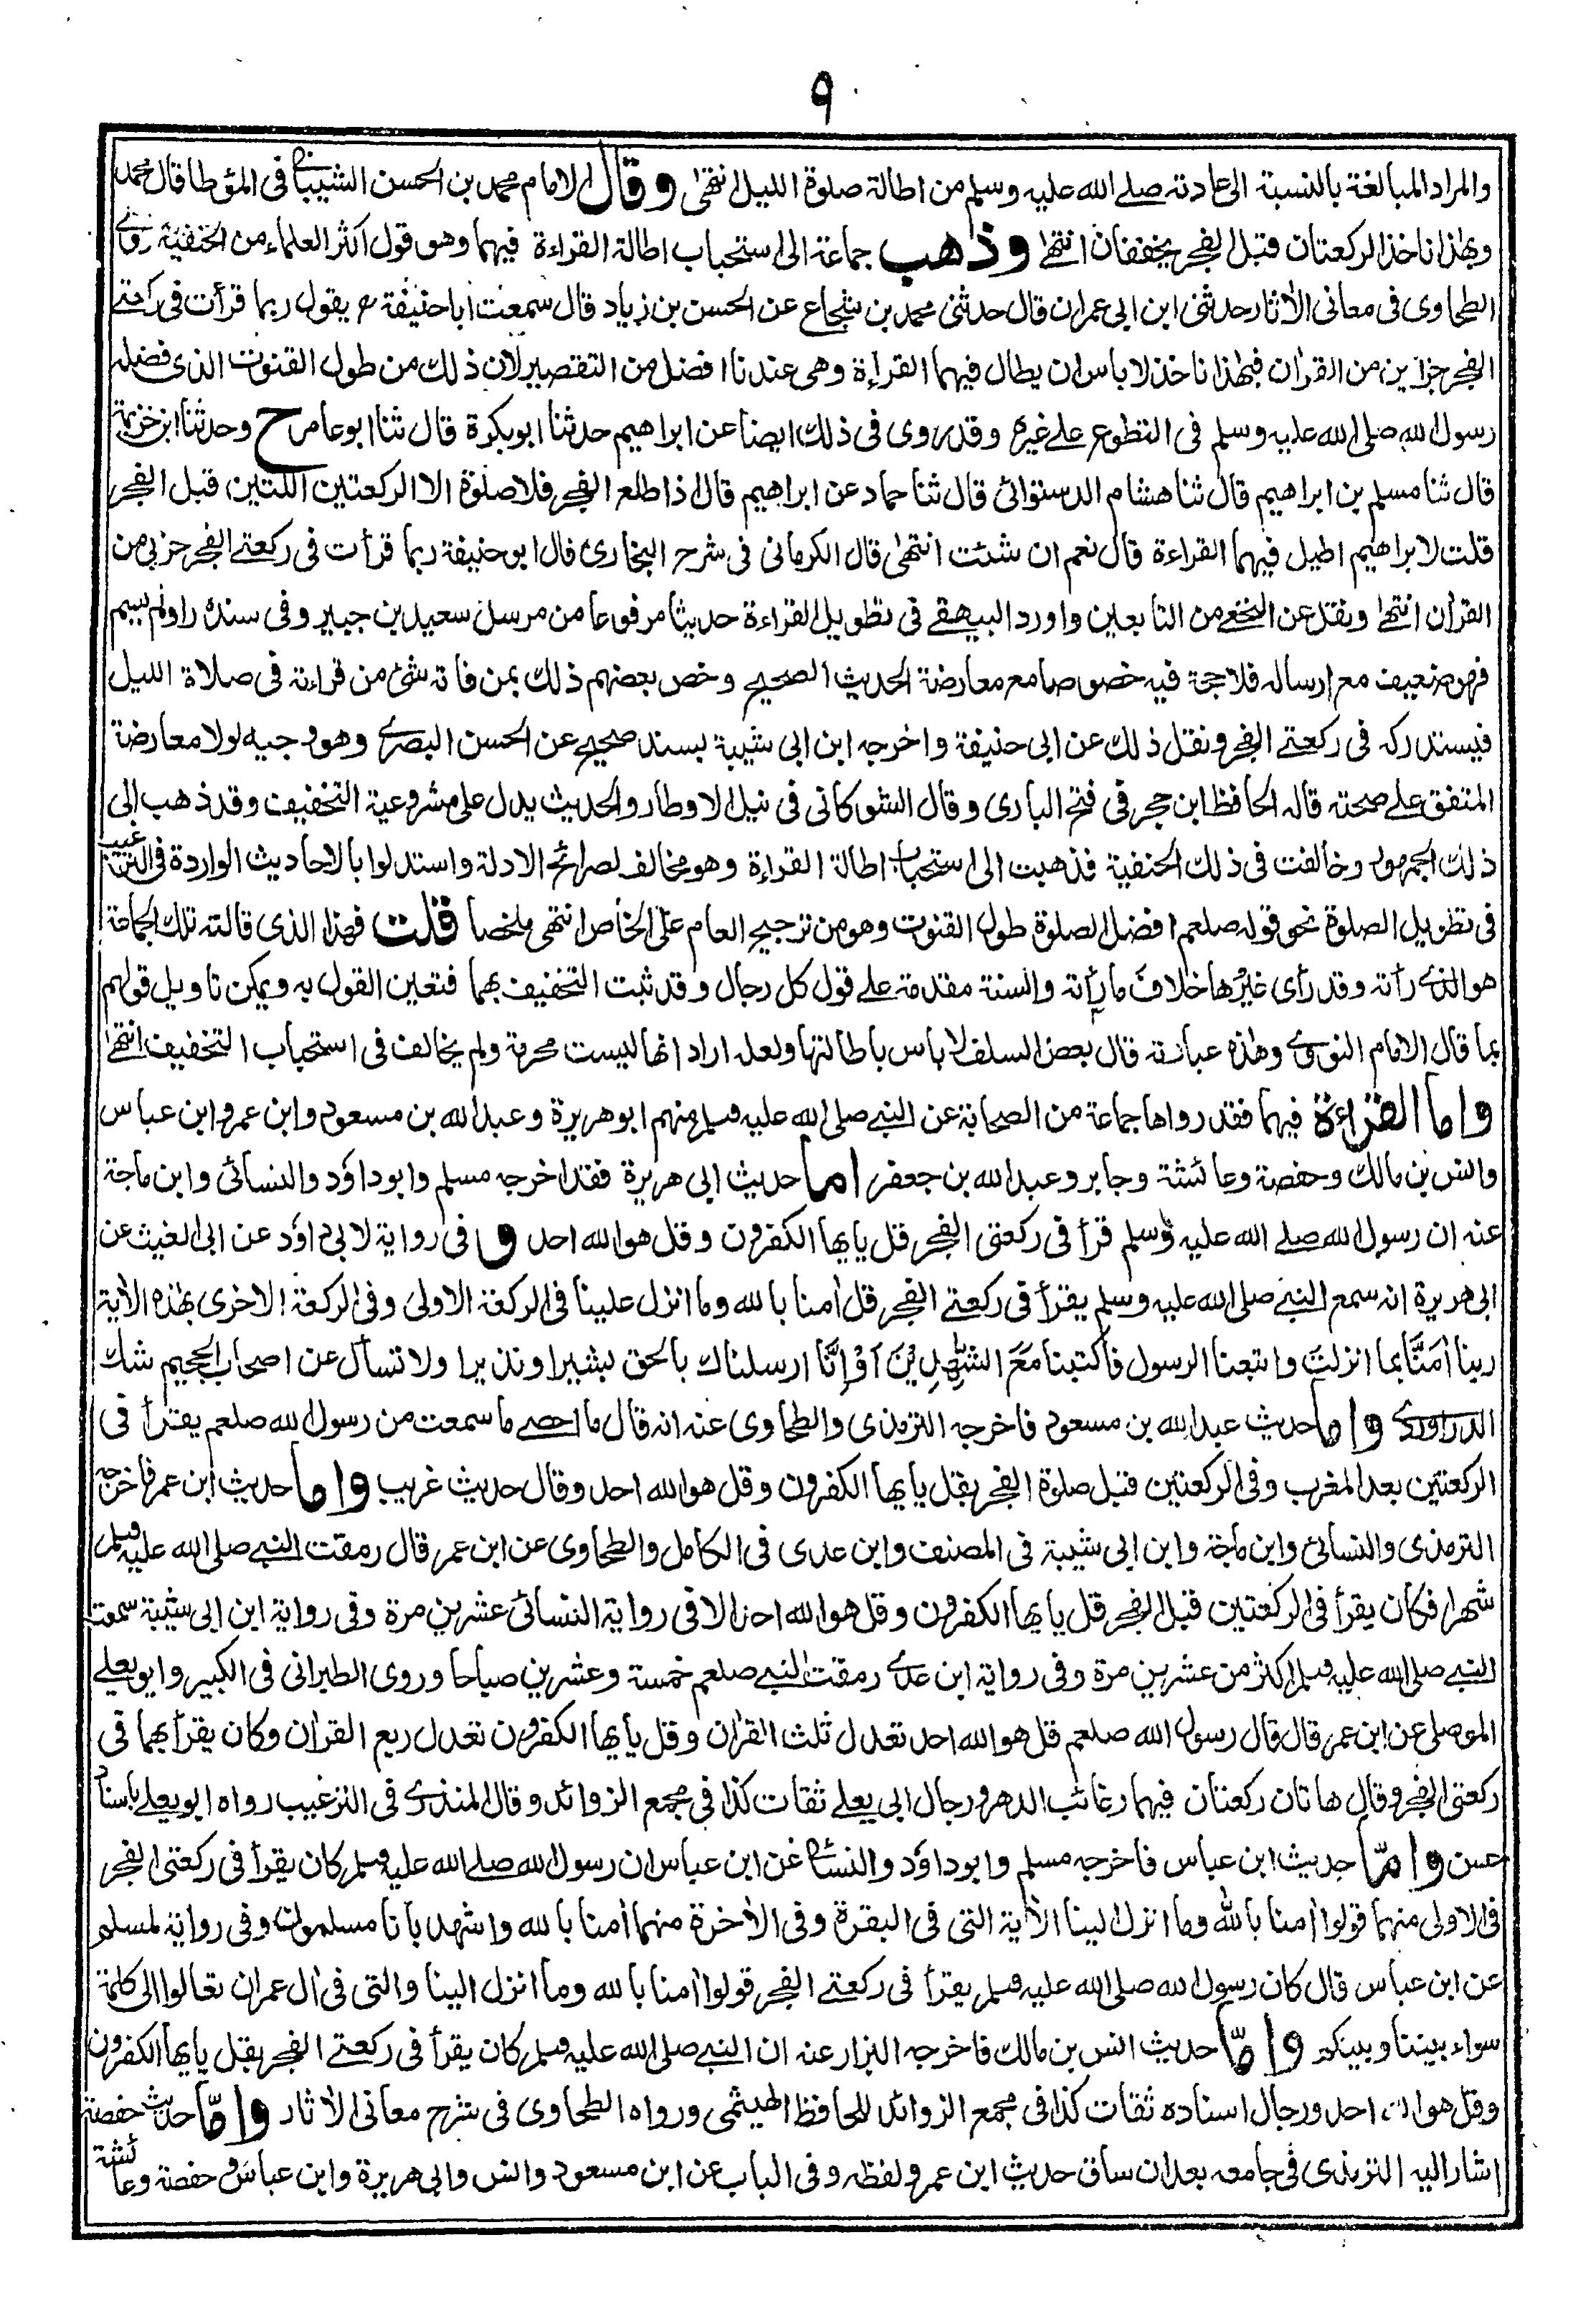 ٩
والمراد المبالغة بالنسبة الى عادته صلى الله عليه وسلم من اطالة صلوة الليل انتهى وقال الامام محمد بن الحسن الشيباني في المؤطا قال محمد
وبهذا ناخذ الركعتان قبل الفجر يخففان انتهى وذهب جماعة الى استحباب اطالة القراءة فيهما وهو قول اكثر العلماء من الحنفية روى
الطحاوى فى معانى الاثار حدثنى ابن ابى عمران قال حدثنى محمد بن شجاع عن الحسن بن زياد قال سمعت ابا حنيفة رح يقول ربما قرأت فى ركعتے
الفجر جزاين من القران فبهذا ناخذ لا باس ان يطال فيهما القراءة وهى عندنا افضل من التقصير لان ذلك من طول القنوت الذى فضله
رسول الله صلى الله عليه وسلم فى التطوع على غيره وقد روى فى ذلك ايضا عن ابراهيم حدثنا ابوبكرة قال ثنا ابو عامر ح وحدثنا ابن خزيمة
قال ثنا مسلم بن ابراهيم قال ثنا هشام الدستوائى قال ثنا حماد عن ابراهيم قال اذا طلع الفجر فلا صلوة الا الركعتين اللتين قبل الفجر
قلت لابراهيم اطيل فيهما القراءة قال نعم ان شئت انتهى قال الكرمانى فى شرح البخارى قال ابو حنيفة ربما قرأت فى ركعتے الفجر حزبى من
القرأن انتهى ونقل عن النخعے من التابعين واورد البيهقے فى تطويل القراءة حديثا مرفوعا من مرسل سعيد بن جبير وفى سنده راو لم يسم
فهو ضعيف مع ارساله فلا حجة فيه خصوصا مع معارضة الحديث الصحيح وخص بعضهم ذلك بمن فاته شئ من قراءته فى صلاة الليل
فيستدركه فى ركعتے الفجر ونقل ذلك عن ابى حنيفة واخرجه ابن ابى شيبة بسند صحيح عن الحسن البصرے وهو وجيه لولا معارضة
المتفق على صحته قاله الحافظ ابن حجر فى فتح البارى وقال الشوكانى فى نيل الاوطار والحديث يدل على مشروعية التخفيف وقد ذهب الى
ذلك الجمهور وخالفت فى ذلك الحنفية فذهبت الى استحباب اطالة القراءة وهو مخالف لصرائح الادلة واستدلوا بالاحاديث الواردة فى الترغيب
فى تطويل الصلوة نحو قوله صلعم افضل الصلوة طول القنوت وهو من ترجيح العام على الخاص انتهى ملخصا قلت فهذا الذى قالته تلك الجماعة
هو الذے رأته وقد رأى غيرها خلاف ما رأته والسنة مقدمة على قول كل رجال وقد ثبت التخفيف بهما فتعين القول به ويمكن تاويل قولهم
بما قال الامام النووے وهذه عبارته قال بعض السلف لا باس باطالتها ولعله اراد انها ليست محرمة ولم يخالف فى استحباب التخفيف انتهى
واما القراءة فيهما فقد رواها جماعة من الصحابة عن النبے صلى الله عليه وسلم منهم ابو هريرة وعبد الله بن مسعود وابن عمر وابن عباس
وانس بن مالك وحفصة وعائشة وجابر وعبد الله بن جعفر اما حديث ابى هريرة فقد اخرجه مسلم وابوداؤد والنسائى وابن ماجة
عنه ان رسول الله صلے الله عليه وسلم قرأ فى ركعتى الفجر قل يايها الكفرون وقل هو الله احد وفى رواية لابى داؤد عن ابى الغيث عن
ابى هريرة انه سمع النبے صلى الله عليه وسلم يقرأ فى ركعتے الفجر قل أمنا بالله وما انزل علينا فى الركعة الاولى وفى الركعة الاخرى بهذه الأية
ربنا أمنا بما انزلت واتبعنا الرسول فاكتبنا مع الشهدين او انا ارسلناك بالحق بشيرا ونذيرا ولا تسأل عن اصحاب الجحيم شك
الدراوردے واما حديث عبد الله بن مسعود فاخرجه الترمذى والطحاوى عنه انه قال ما احصے ما سمعت من رسول الله صلعم يقرأ فى
الركعتين بعد المغرب وفى الركعتين قبل صلوة الفجر بقل يايها الكفرون وقل هو الله احد وقال حديث غريب واما حديث ابن عمر فاخرجه
الترمذى والنسائى وابن ماجة وابن ابى شيبة فى المصنف وابن عدى فى الكامل والطحاوى عن ابن عمر قال رمقت النبے صلى الله عليه وسلم
شهرا فكان يقرأ فى الركعتين قبل الفجر قل يايها الكفرون وقل هو الله احد الا فى رواية النسائى عشرين مرة وفى رواية ابن ابى شيبة سمعت
النبے صلى الله عليه وسلم اكثر من عشرين مرة وفى رواية ابن عدے رمقت النبے صلعم خمسة وعشرين صباحا وروى الطبرانى فى الكبير وابو يعلے
الموصلى عن ابن عمر قال قال رسول الله صلعم قل هو الله احد تعدل ثلث القران وقل يأيها الكفرون تعدل ربع القران وكان يقرأ بهما فى
ركعتى الفجر وقال هاتان ركعتان فيهما رغائب الدهر ورجال ابى يعلے ثقات كذا فى مجمع الزوائد وقال المنذرى فى الترغيب رواه ابو يعلے باسناد
حسن واما حديث ابن عباس فاخرجه مسلم وابوداؤد والنسائى عن ابن عباس ان رسول الله صلے الله عليه وسلم كان يقرأ فى ركعتى الفجر
فى الاولى منهما قولوا أمنا بالله وما انزل الينا الأية التى فى البقرة وفى الأخرة منهما أمنا بالله واشهد بأنا مسلمون وفى رواية لمسلم
عن ابن عباس قال كان رسول الله صلى الله عليه وسلم يقرأ فى ركعتے الفجر قولوا أمنا بالله وما انزل الينا والتى فى أل عمران تعالوا الى كلمة
سواء بيننا وبينكم واما حديث انس بن مالك فاخرجه البزار عنه ان النبے صلى الله عليه وسلم كان يقرأ فى ركعتے الفجر بقل يايها الكفرون
وقل هو الله احد ورجال اسناده ثقات كذا فى مجمع الزوائد للحافظ الهيثمى ورواه الطحاوى فى شرح معانى الاثار واما حديث حفصة
اشار اليه الترمذى فى جامعه بعد ان ساق حديث ابن عمر ولفظه وفى الباب عن ابن مسعود وانس وابى هريرة وابن عباس وحفصة وعائشة